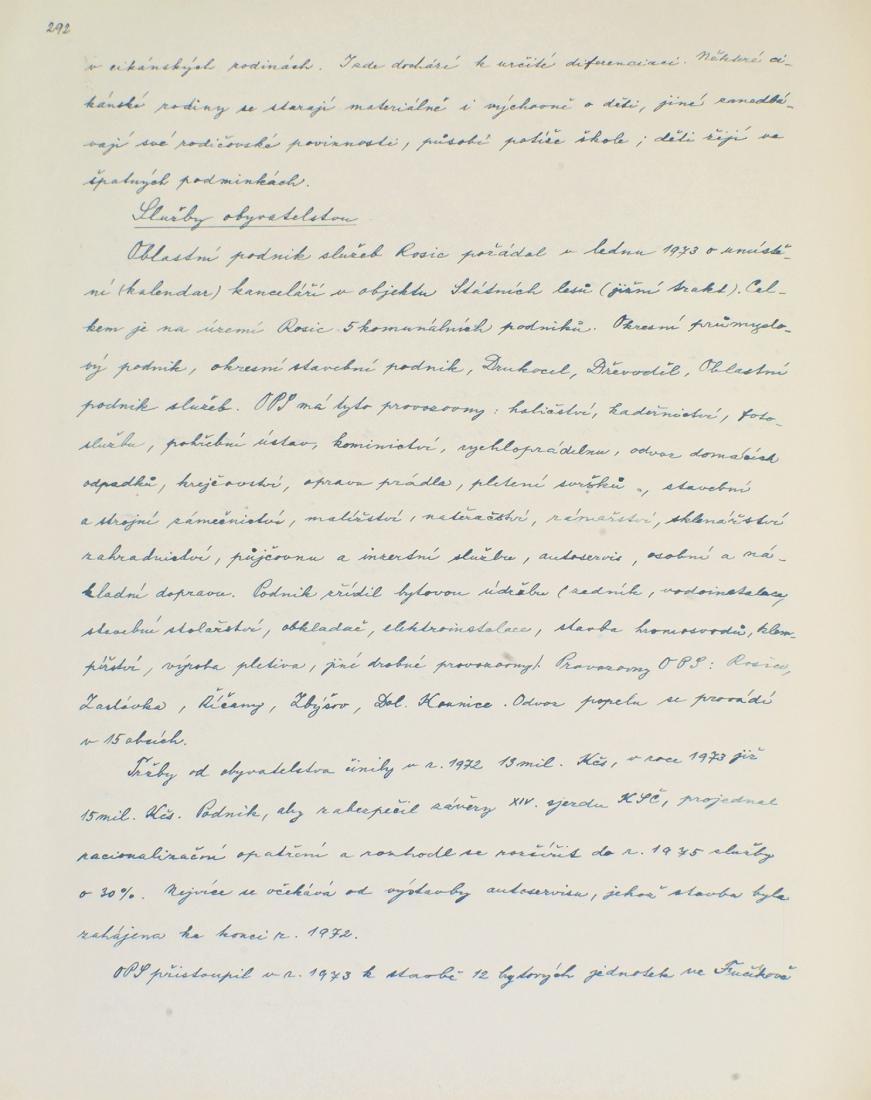 292
v cikánských rodinách. I zde dochází k určité diferenciaci. Některé ci-
kánské rodiny se starají materiálně i výchovně o děti, jiné zanedbá-
vají své rodičovské povinnosti, působí potíže škole; děti žijí ve
špatných podmínkách.
Služby obyvatelstvu
Oblastní podnik služeb Rosic požádal v lednu 1973 o umístě-
ní (kalendar) kanceláří v objektu Státních lesů (jižní trakt). Cel-
kem je na území Rosic 5 komunálních podniků. Okresní průmyslo-
vý podnik, okresní stavební podnik, Drukocel, Dřevodíl, Oblastní
podnik služeb. OPS má tyto provozovny: holičství, kadeřnictví, foto-
službu, pohřební ústav, kominictví, rychloprádelnu, odvoz domácích
odpadků, krejčovství, oprava prádla, pletení svršků, stavební
a strojní zámečnictví, malířství, natěračství, rámařství, sklenářství
zahradnictví, půjčovnu a inzertní službu, autoservis, osobní a ná-
kladní dopravu. Podnik zřídil bytovou údržbu (zedník, vodoinstalace,
stavební stolařství, obkladač, elektroinstalace, stavba hromosvodů, klem-
pířství, výroba pletiva, jiné drobné provozovny). Provozovny OPS: Rosice,
Zastávka, Říčany, Zbýšov, Dol. Kounice. Odvoz popelu se provádí
v 15 obcích.
Tržby od obyvatelstva činily v r. 1972 13 mil. Kčs, v roce 1973 již
15 mil. Kčs. Podnik, aby zabezpečil závěry XIV. sjezdu KSČ, projednal
racionalizační opatření a rozhodl se rozšířit do r. 1975 služby
o 30%. Nejvíce se očekává od výstavby autoservisu, jehož stavba byla
zahájena ke konci r. 1972.
OPS přistoupil v r. 1973 k stavbě 12 bytových jednotek ve Fučíkově